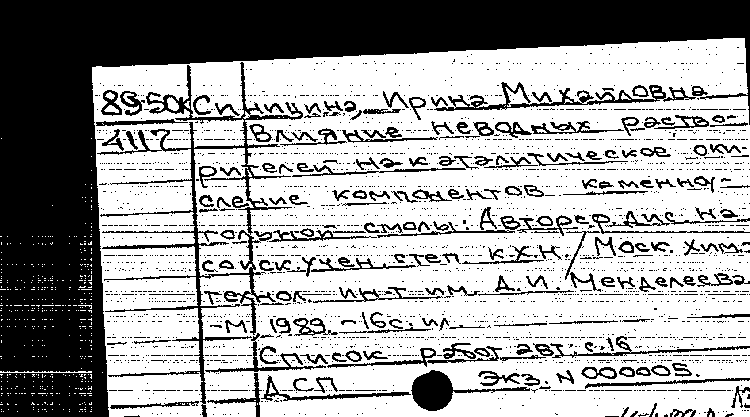 89-50к Синицина, Ирина Михайловна
4117 Влияние неводных раство-
рителей на каталитическое оки-
сление компонентов каменноу-
гольной смолы: Автореф. дис. на
соиск. учен. степ. к.х.н. / Моск. хим.-
технол. ин-т им. Д.И. Менделеева
-М., 1989. -16с. ил.
Список работ авт.: с.16
ДСП Экз. N 000005.